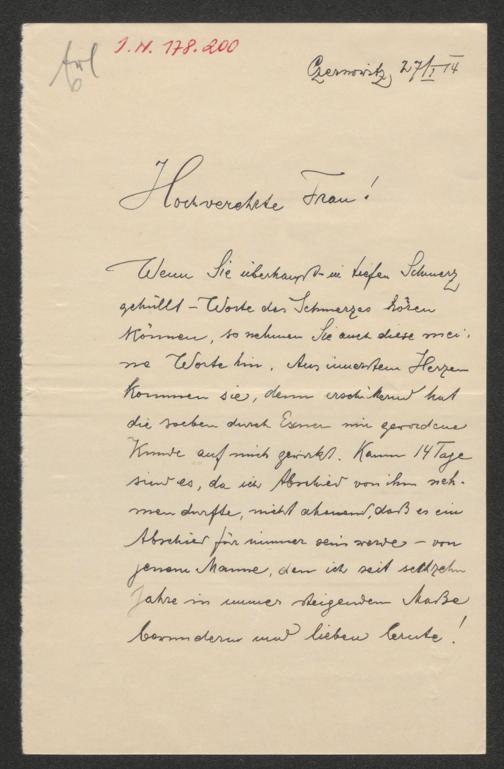 I. N. 178.200
Czernowitz, 27/I 14
Hochverehrte Frau!
Wenn Sie überhaupt – in tiefen Schmerz
gehüllt – Worte des Schmerzes hören
können, so nehmen Sie auch diese mei-
ne Worte hin. Aus innerstem Herzen
kommen sie, denn erschütternd hat
die soeben durch Exner mir gewordene
Kunde auf mich gewirkt. Kaum 14 Tage
sind es, da ich Abschied von ihm neh-
men durfte, nicht ahnend, daß es ein
Abschied für immer sein werde – von
jenem Manne, den ich seit sechzehn
Jahre in immer steigendem Maße
bewundern und lieben lernte!